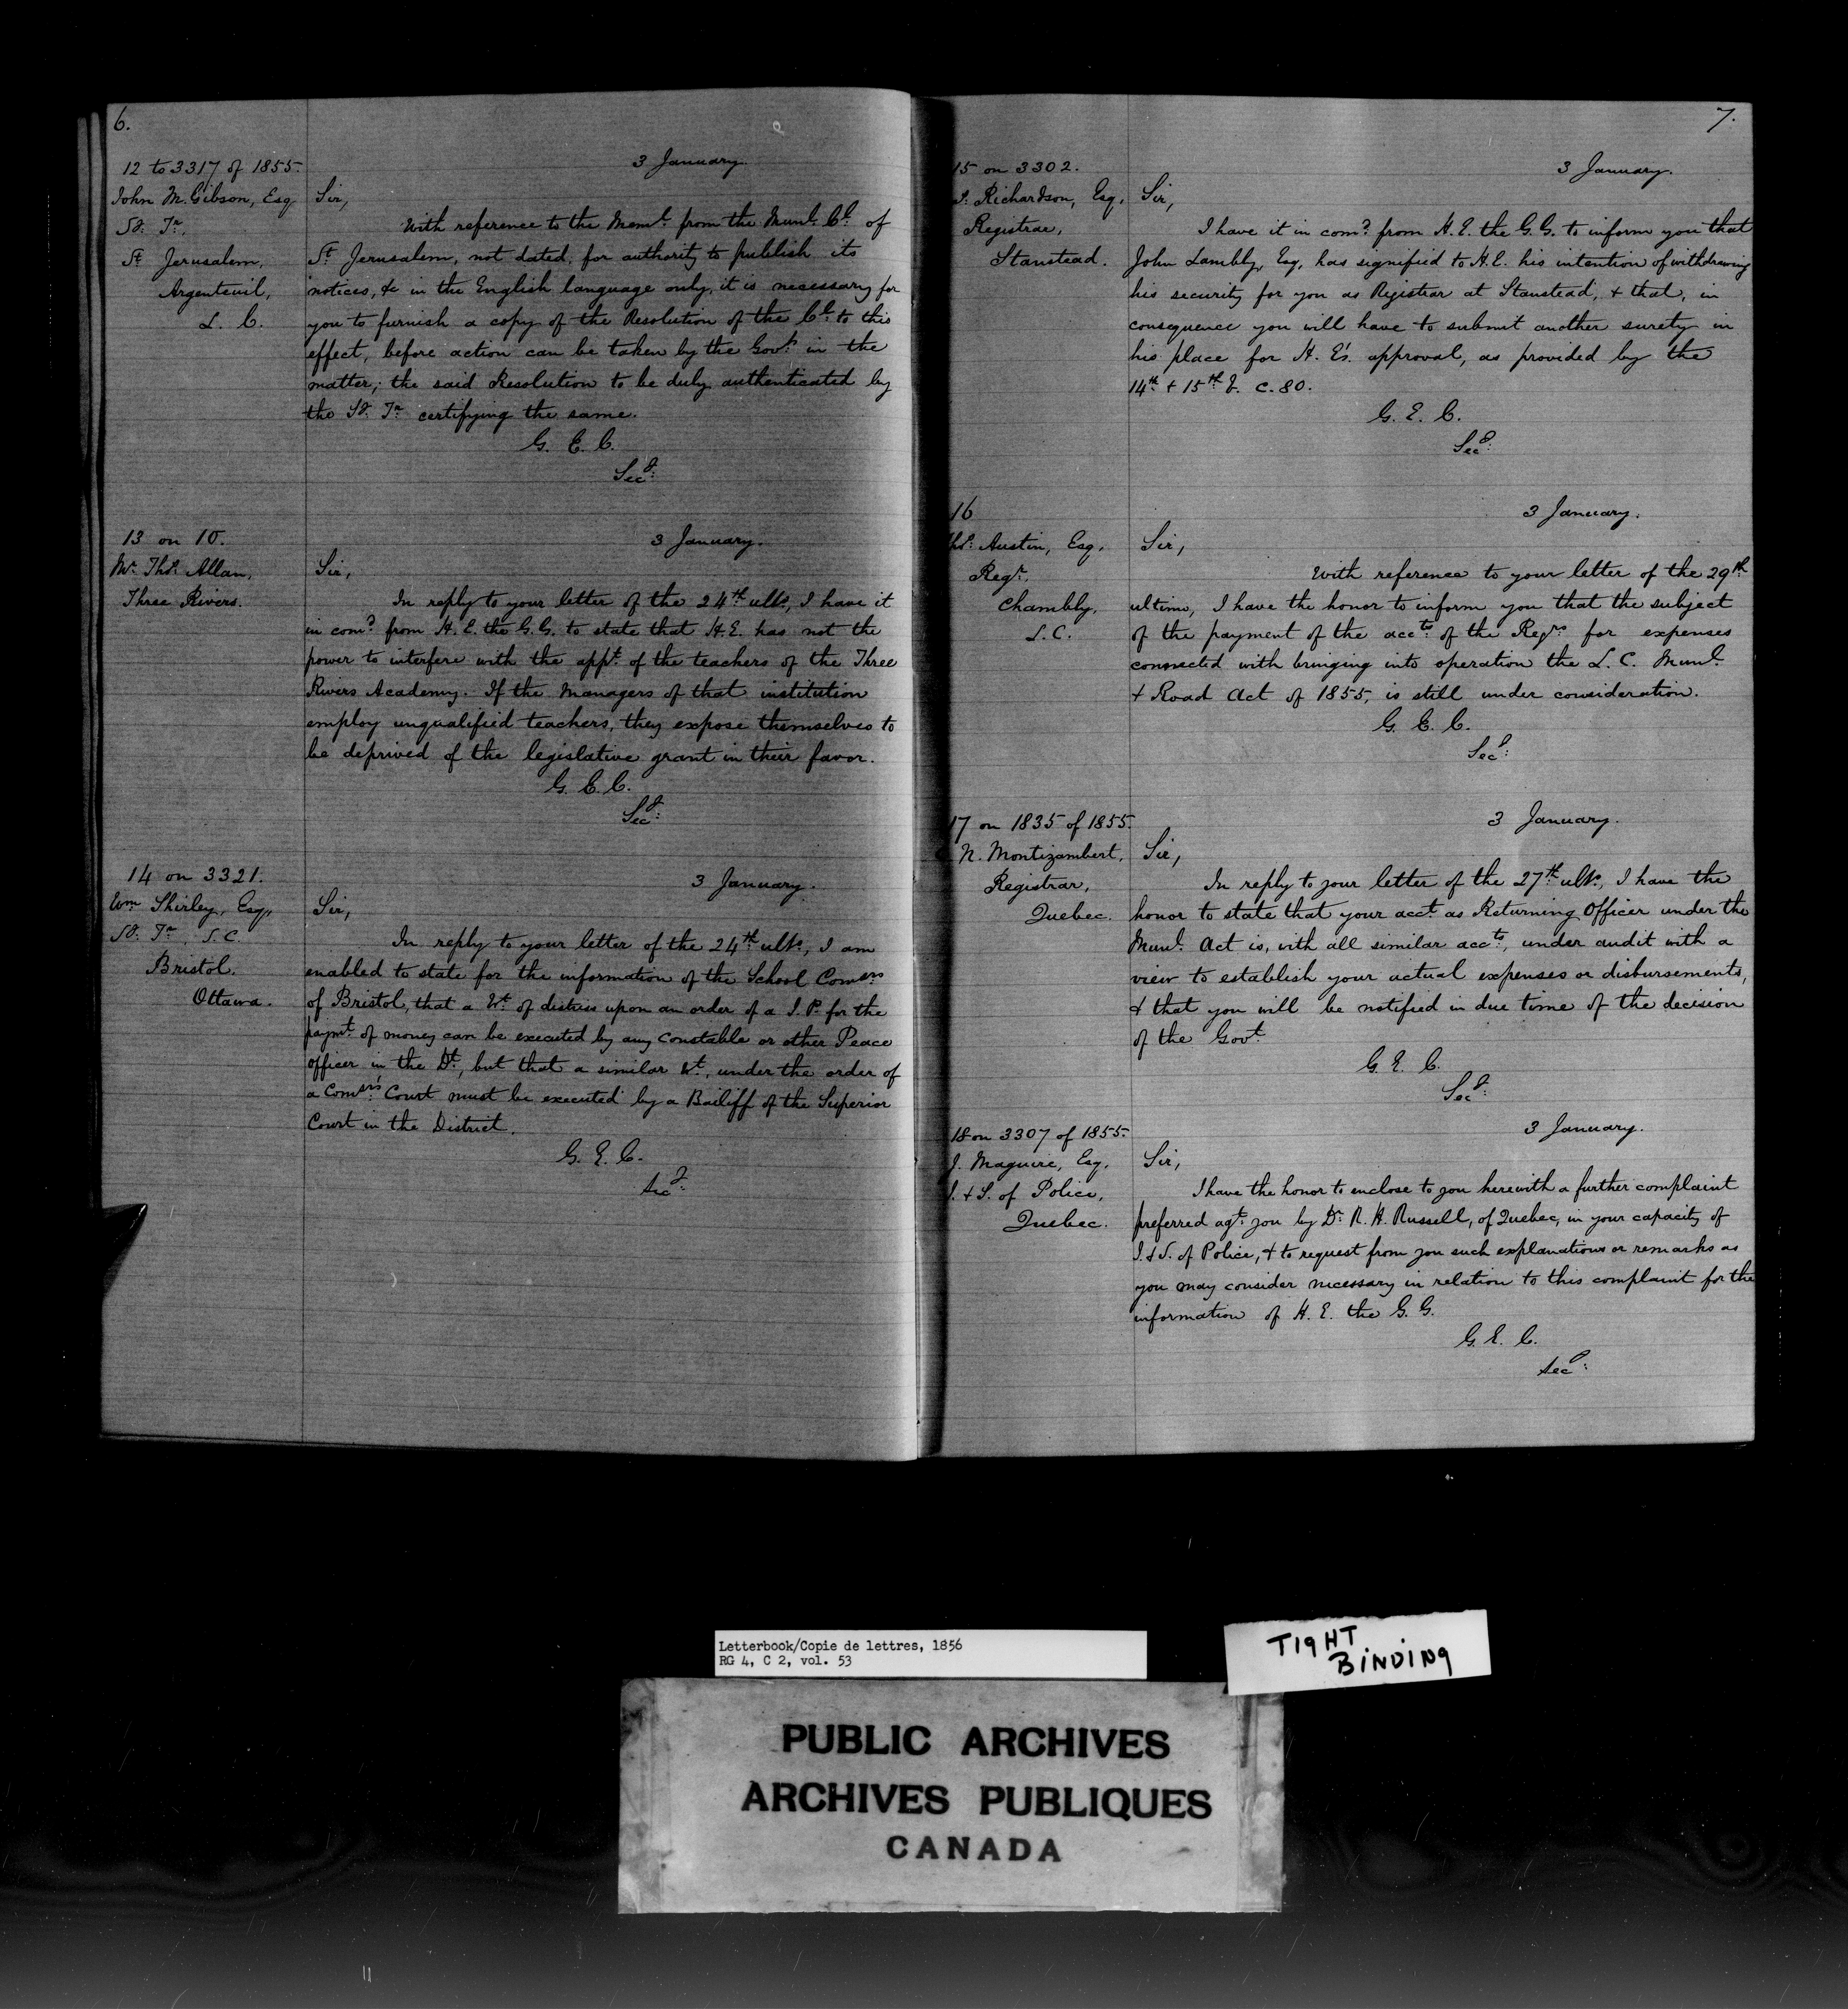 6.
12 to 3317 of 1855.
John M. Gibson, Esq
Sy. Tr.
St. Jerusalem,
Argenteuil,
L. C.
3 January.
Sir,
With reference to the Meml. from the Munl. Cl. of
St. Jerusalem, not dated, for authority to publish its
notices, &c in the English language only, it is necessary for
you to furnish a copy of the Resolution of the Cl. to this
effect, before action can be taken by the Govt. in the
matter; the said Resolution to be duly authenticated by
the Sy. Tr. certifying the same.
G. E. C.
Secy.
13 on 10.
Mr. Thos. Allan,
Three Rivers.
3 January.
Sir,
In reply to your letter of the 24th. ulto., I have it
in comd. from H. E. the G. G. to state that H. E. has not the
power to interfere with the appt. of the teachers of the Three
Rivers Academy. If the managers of that institution
employ unqualified teachers, they expose themselves to
be deprived of the legislative grant in their favor.
G. E. C.
Secy.
14 on 3321.
Wm. Shirley, Esq.,
Sy. Tr. S. C.
Bristol.
Ottawa.
3 January.
Sir,
In reply to your letter of the 24th. ulto., I am
enabled to state for the information of the School Comsrs.
of Bristol, that a Wt. of distress upon an order of a J. P. for the
paymt. of money can be executed by any Constable or other Peace
Officer in the Dt., but that a similar Wt., under the order of
a Comsrs.' Court must be executed by a Bailiff of the Superior
Court in the District.
G. E. C.
Secy.
7.
15 on 3302.
Richardson, Esq.
Registrar,
Stanstead.
3 January.
Sir,
I have it in comd. from H. E. the G. G. to inform you that
John Lambly, Esq, has signified to H. E. his intention of withdrawing
his security for you as Registrar at Stanstead, & that, in
consequence you will have to submit another surety in
his place for H. E's. approval, as provided by the
14th. & 15th. V. c. 80.
G. E. C.
Secy.
16
Thos. Austin, Esq.
Regr.
Chambly.
L. C.
3 January.
Sir,
With reference to your letter of the 29th.
ultimo, I have the honor to inform you that the subject
of the payment of the accts. of the Regrs. for expenses
connected with bringing into operation the L. C. Munl.
& Road Act of 1855, is still under consideration.
G. E. C.
Secy.
17 on 1835 of 1855.
N. Montizambert,
Registrar,
Quebec.
3 January.
Sir,
In reply to your letter of the 27th. ulto., I have the
honor to state that your acct. as Returning Officer under the
Munl. Act is, with all similar accts., under audit with a
view to establish your actual expenses or disbursements,
& that you will be notified in due time of the decision
of the Govt.
G. E. C.
Secy.
18 on 3307 of 1855.
J. Maguire, Esq.
I. & S. of Police,
Quebec.
3 January.
Sir,
I have the honor to enclose to you herewith a further complaint
preferred agt. you by Dr. R. H. Russell, of Quebec, in your capacity of
I. & S. of Police, & to request from you such explanations or remarks as
you may consider necessary in relation to this complaint for the
information of H. E. the G. G.
G. E. C.
Secy.
Letterbook/Copie de lettres, 1856
RG 4, C 2, vol. 53
TIGHT
BINDING
PUBLIC ARCHIVES
ARCHIVES PUBLIQUES
CANADA